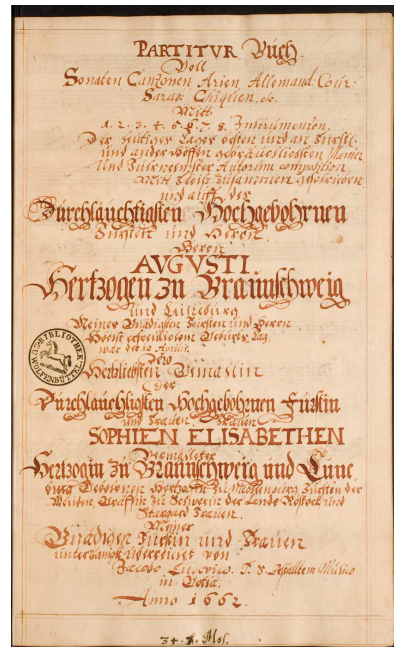 PARTITVR Buch
Voll
Sonaten Canzonen Arien, Allemand: Cour:
Sarab: Chiquen. etc.
Mitt
1. 2. 3. 4. 5. 6. 7. 8. Instrumenten.
Der heutiger Tages besten und an Fürstl.
und ander Höffen gebräuchlichsten Manier
Und Fürnemster Autorum composition
Mitt Fleis zusammen geschrieben
und auff der
Durchlauchtigsten Hochgebohrnen
Fürsten und Herrn
Herrn
AUGVSTI
Hertzogen zu Braunschweig
und Lüneburg
Meines Gnädigsten Fürsten und Herrn
Höchst erfreulichem Geburts Tag
war der 10. Aprilis.
Dero
Hertzliebsten Gemahlin
Der
Durchlauchtigsten Hochgebohrnen Fürstin
und Frauen Frauen
SOPHIEN ELISABETHEN
Vermählter
Hertzogin zu Braunschweig und Lüne
burg Gebohrnen Hertzogin zu Mecklenburg Fürstin der
Wenden, Gräffin zu Schwerin der Lande Rostock und
Stargard Frauen.
Meiner
Gnädigen Fürstin und Frauen
unterthänig überreichet von
Jacobo Ludovico. F. S. Musico
in Gotha.
Anno 1662.
BIBLIOTHEK
WOLFENBÜTTEL
34. 7. Mus.